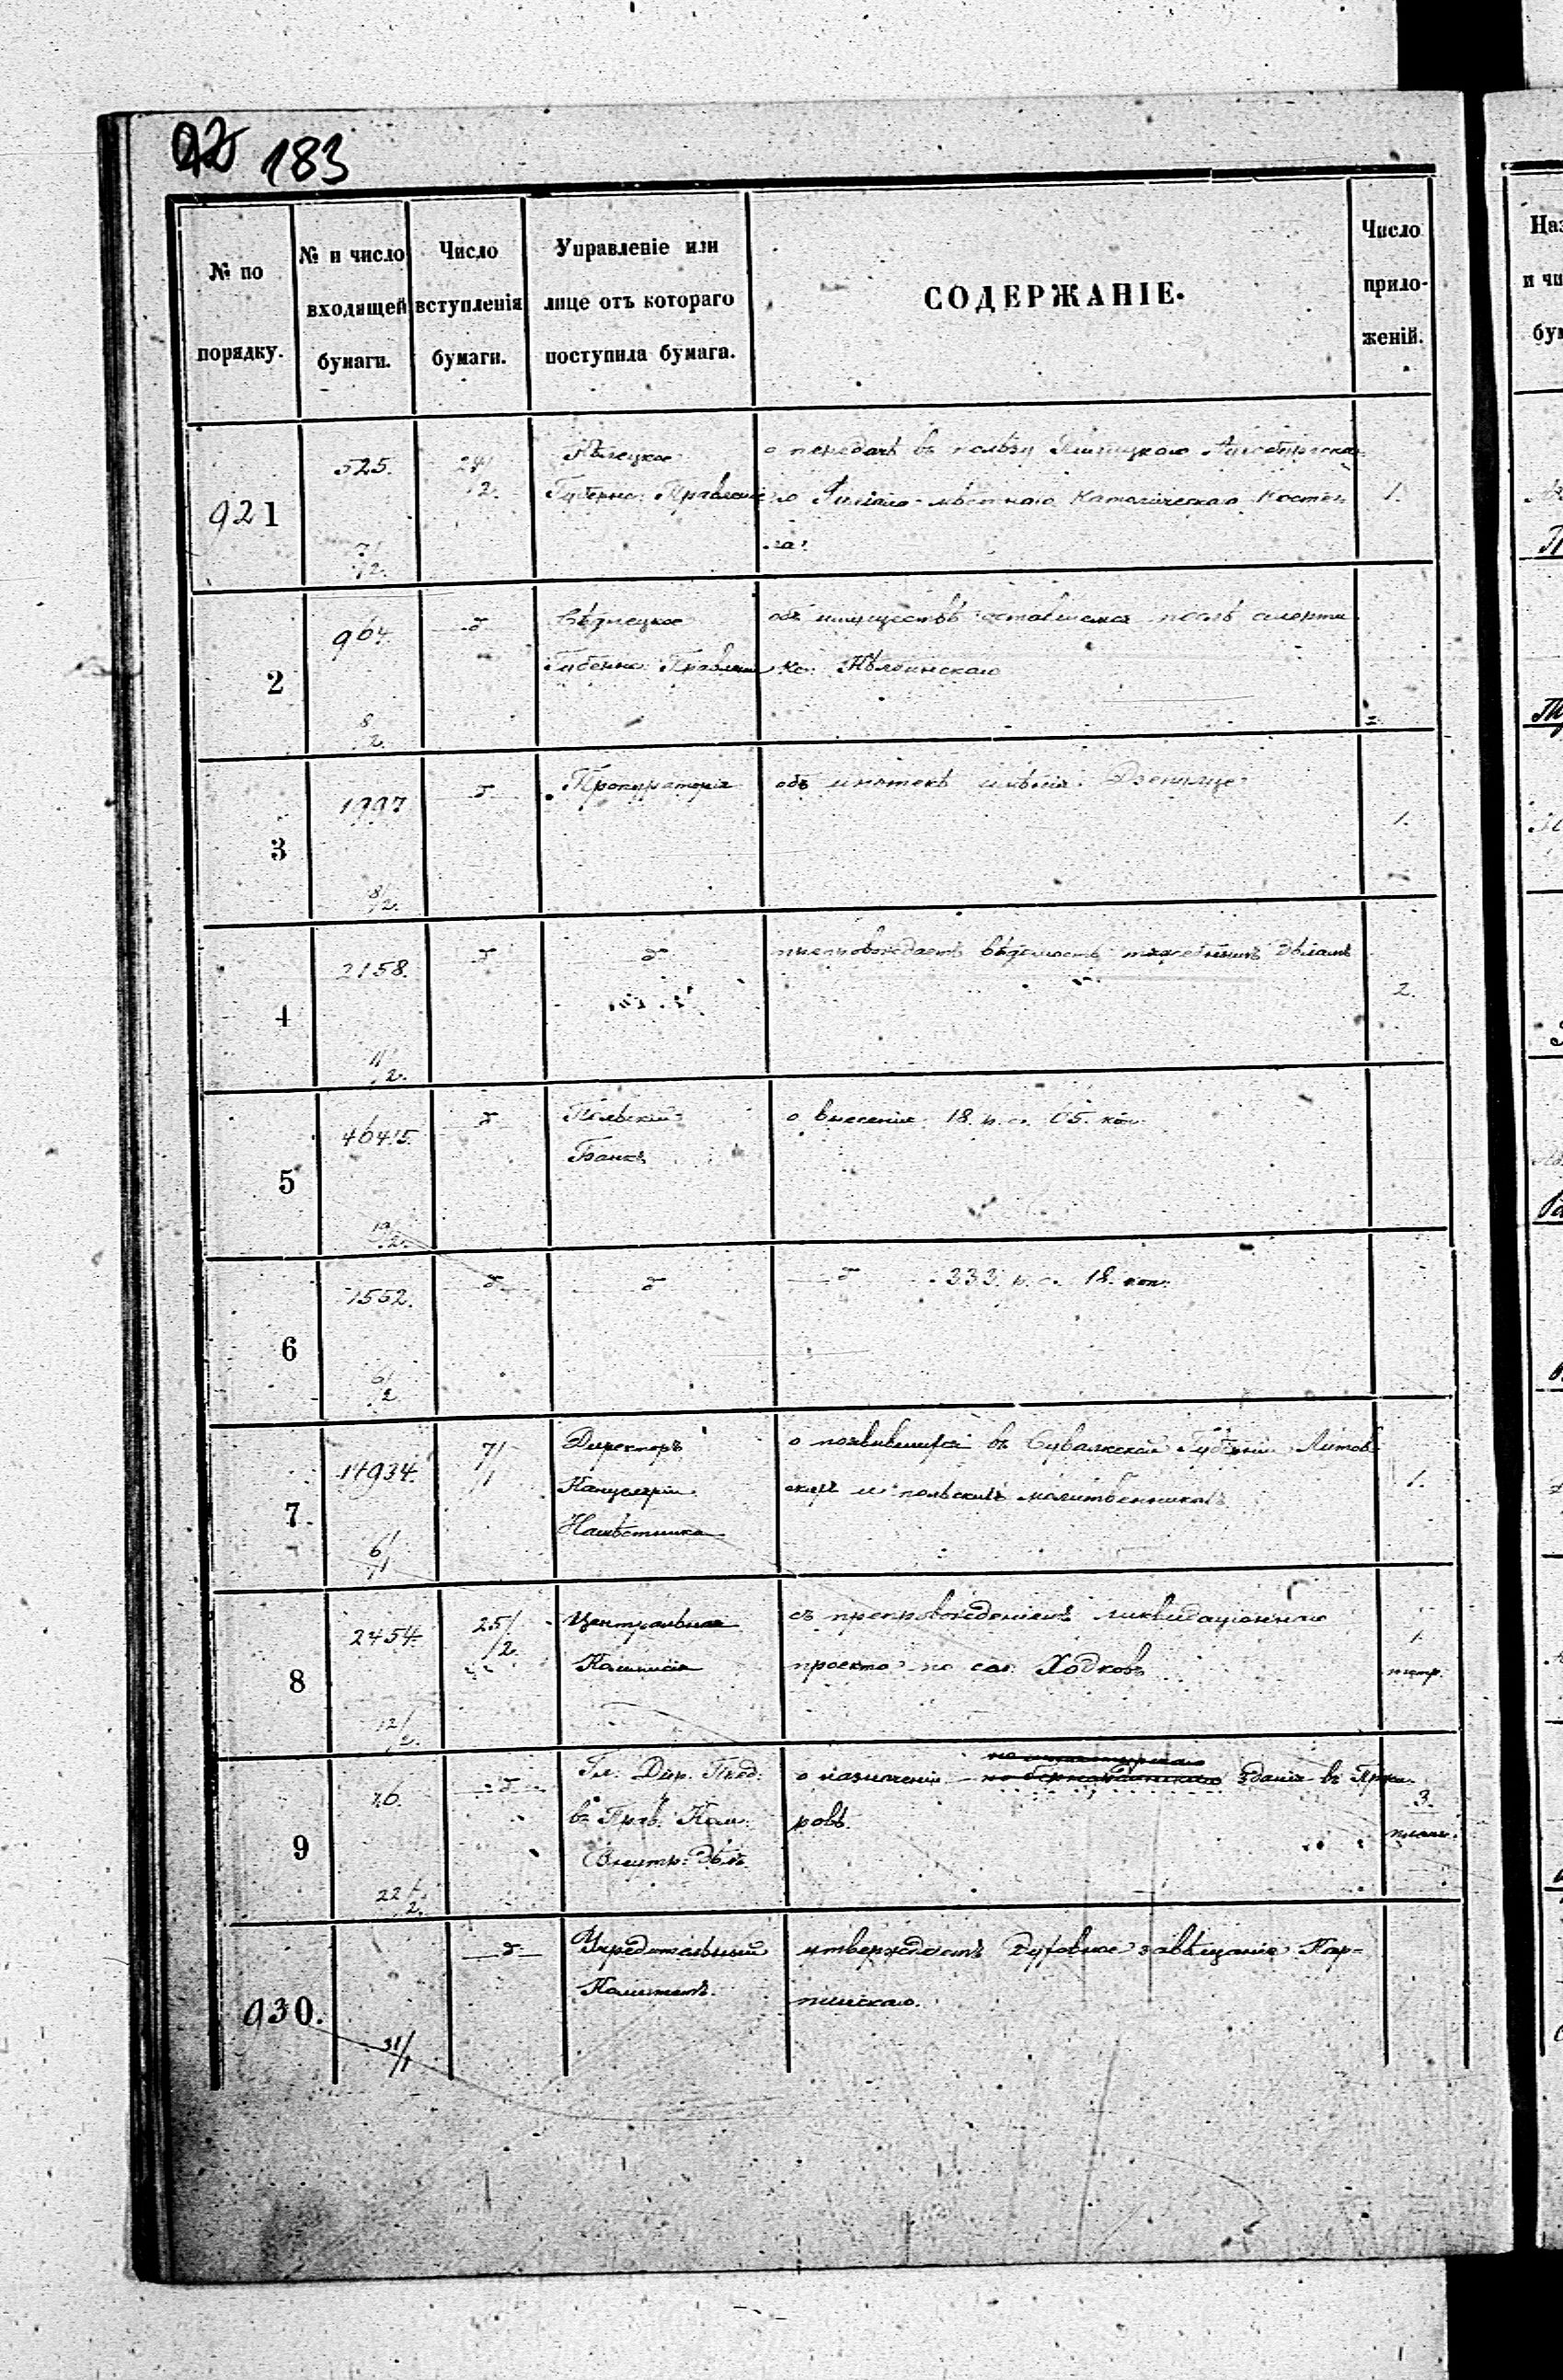 183
№ по порядку.
№ и число входящей бумаги.
Число вступленія бумаги.
Управленіе или лице отъ котораго поступила бумага.
СОДЕРЖАНІЕ.
Число приложеній.
921
525.
7/2.
24/2.
Губернс. Правленіе
о передачѣ въ пользу
мѣстнаго Католическаго Костё-
ла.
1.
2
964.
8/2.
Сѣдлецкое
Губернс. Правленіе
объ имуществѣ оставшемся послѣ смерти
кс.
3
1997
8/2.
Прокураторія
объ ипотекѣ имѣнія
1.
4
2158.
11/2.
препровождаетъ вѣдомость тяжебнымъ дѣламъ
2.
5
46415.
19/2.
Польскій
Банкъ
о внесеніи 18. р. с. 65. коп.
6
1552.
6/2
333. р. с. 18. коп.
7.
14934.
6/1
7/1
Директоръ
Канцеляріи
Намѣстника
о появившихся въ Сувалкской Губерніи Литов-
скихъ и польскихъ молитвенникахъ
1.
8
2454.
12/2.
25/2.
Центральная
Коммисія
съ препровожденіемъ ликвидаціоннаго
проекта по сел. Ходковъ
1.
9
76.
22/2.
Гл. Дир. Пред.
въ Прав. Ком.
Внутр. Дѣлъ
о назначеніи зданія въ
ровѣ.
3.
930.
31/1
Учредительный
Комитетъ.
утверждаетъ духовное завѣщаніе Кар-
пинскаго.